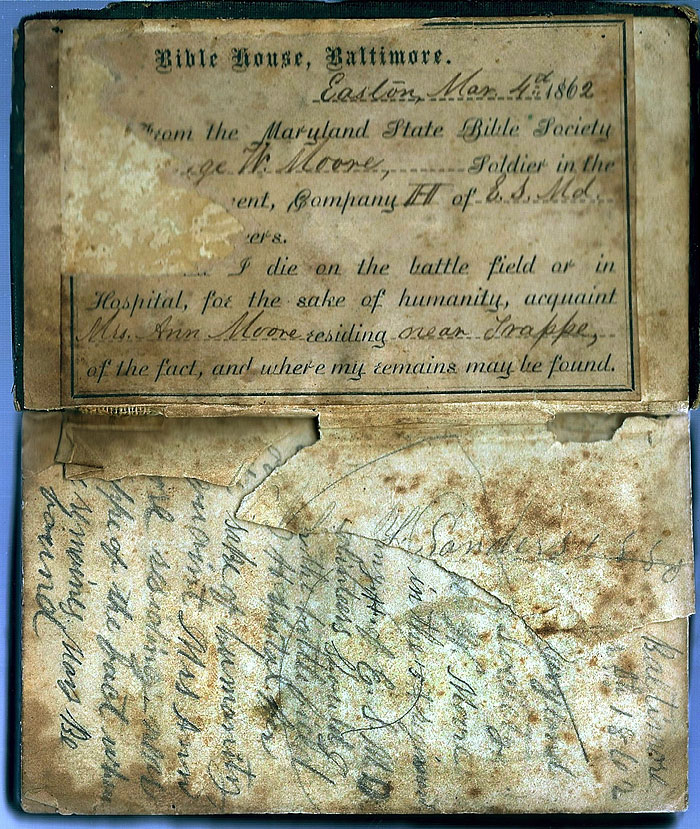 Bible House, Baltimore.
Easton, Mar 4 1862
From the Maryland State Bible Society
ge W. Moore, Soldier in the
ent, Company H of E. S. Md.
ers.
I die on the battle field or in
Hospital, for the sake of humanity, acquaint
Mrs. Ann Moore residing near Trappe,
of the fact, and where my remains may be found.
Sanders
Baltimore
1862
Maryland
Society
W. Moore
in the
of E S MD
volunteers Should I
the battle field
Hospital for
sake of humanity
Mrs Ann
residing near
of the fact where
May Be
found